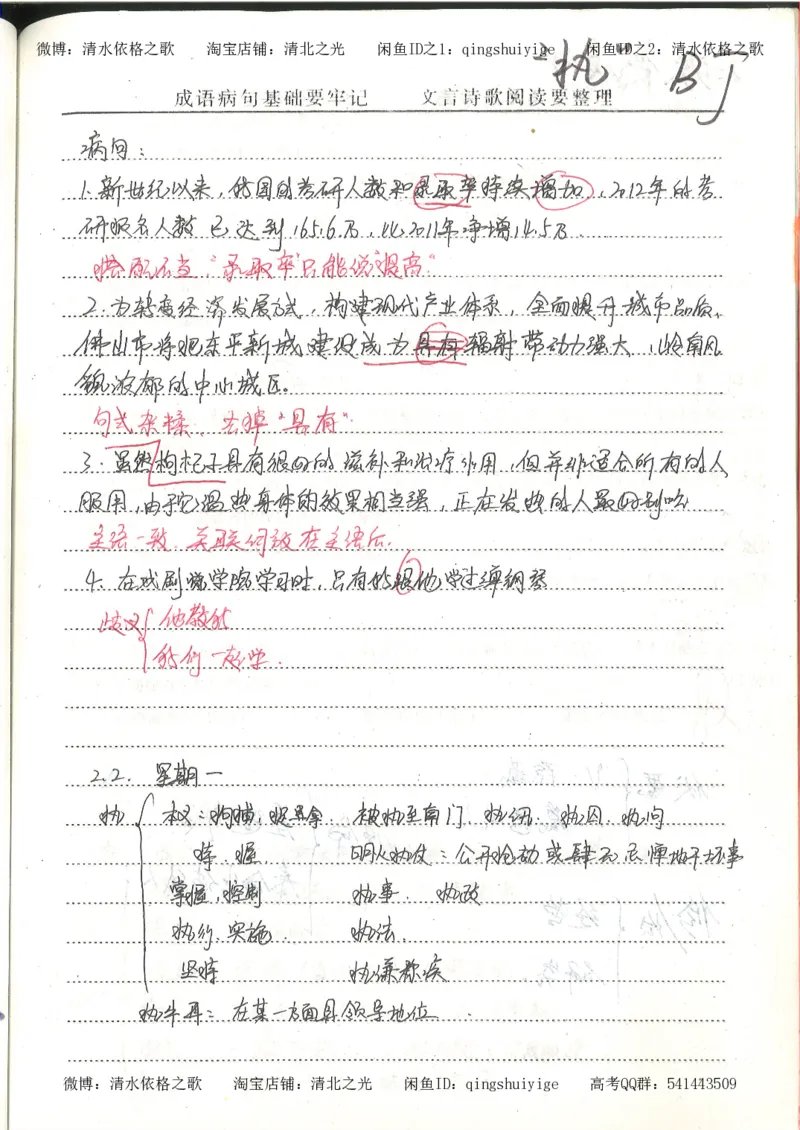 微博：清水依格之歌 淘宝店铺：清北之光 闲鱼ID之1：qingshuiyige 闲鱼ID之2：清水依格之歌
执 BJ
成语病句基础要牢记 文言诗歌阅读要整理
病句：
1. 新世纪以来，我国的考研人数和录取率持续增加，2012年的考
研报名人数已达到165.6万，比2011年净增14.5万.
搭配不当 "录取率"只能说"提高"
2. 为转变经济发展方式，构建现代产业体系，全面提升城市品质，
佛山市将把东平新城建设成为具有辐射带动力强大，岭南风
貌浓郁的中心城区。
句式杂糅，去掉"具有"
3. 虽然枸杞子具有很好的滋补和治疗作用，但并非适合所有的人
服用，由于它温热身体的效果相当强，正在发热的人最好别吃
主语一致，关联词放在主语后.
4. 在戏剧学院学习时，只有我跟他学过弹钢琴
歧义 他教我
我们一起学.
2.2. 星期一
执 本义：拘捕，捉拿 被执至南门 执讯 执囚 执问
持 握 明火执仗：公开抢劫或肆无忌惮地干坏事
掌握，控制 执事. 执政
执行. 实施. 执法.
坚持 执
执牛耳：在某一方面具领导地位
微博：清水依格之歌 淘宝店铺：清北之光 闲鱼ID：qingshuiyige 高考QQ群：541443509